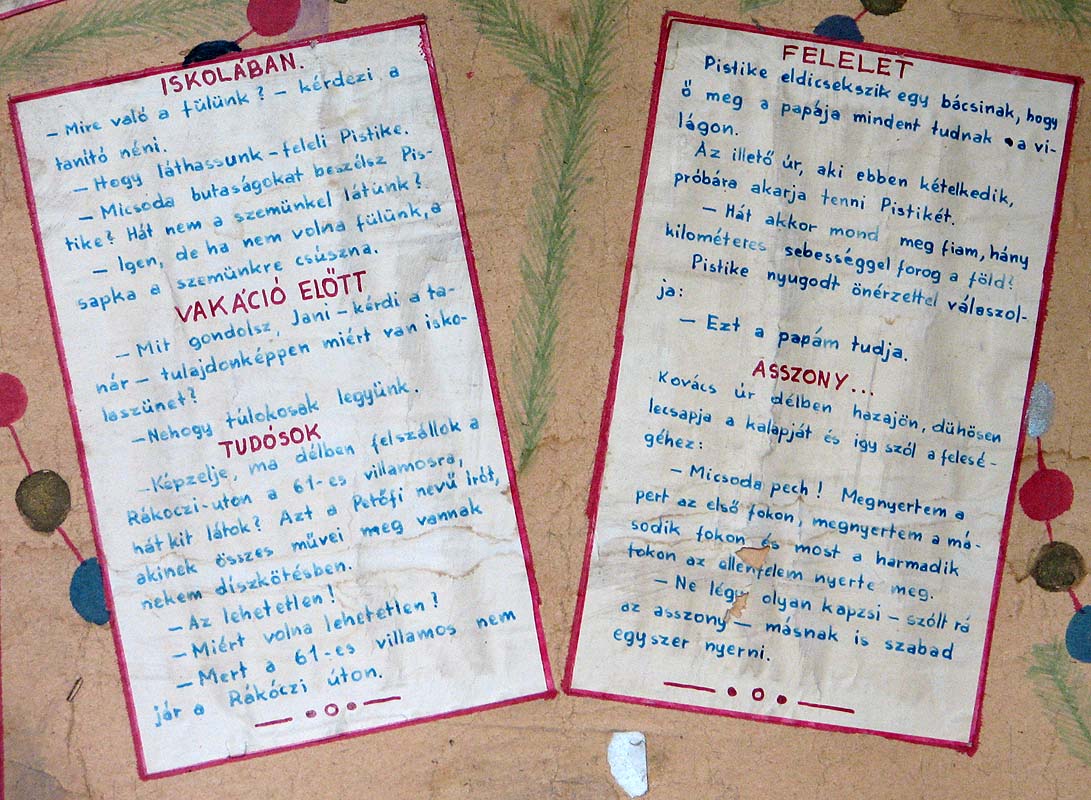 ISKOLÁBAN.
– Mire való a fülünk? – kérdezi a
tanító néni.
– Hogy láthassunk – feleli Pistike.
– Micsoda butaságokat beszélsz Pis-
tike? Hát nem a szemünkel látünk?
– Igen, de ha nem volna fülünk, a
sapka a szemünkre csúszna.
VAKÁCIÓ ELŐTT
– Mit gondolsz, Jani – kérdi a ta-
nár – tulajdonképpen miért van isko-
laszünet?
– Nehogy túlokosak legyünk.
TUDÓSOK
– Képzelje, ma délben felszállok a
Rákoczi-uton a 61-es villamosra,
hát kit látok? Azt a Petőfi nevű írót,
akinek összes művei meg vannak
nekem díszkötésben.
– Az lehetetlen!
– Miért volna lehetetlen?
– Mert a 61-es villamos nem
jár a Rákóczi úton.
FELELET
Pistike eldicsekszik egy bácsinak, hogy
ő meg a papája mindent tudnak a vi-
lágon.
Az illető úr, aki ebben kételkedik,
próbára akarja tenni Pistikét.
– Hát akkor mond meg fiam, hány
kilométeres sebességgel forog a föld?
Pistike nyugodt önérzettel válaszol-
ja:
– Ezt a papám tudja.
ASSZONY...
Kovács úr délben hazajön, dühösen
lecsapja a kalapját és igy szól a felesé-
géhez:
– Micsoda pech! Megnyertem a
pert az első fokon, megnyertem a má-
sodik fokon és most a harmadik
fokon az ellenfelem nyerte meg.
– Ne légy olyan kapzsi – szólt rá
az asszony – másnak is szabad
egyszer nyerni.